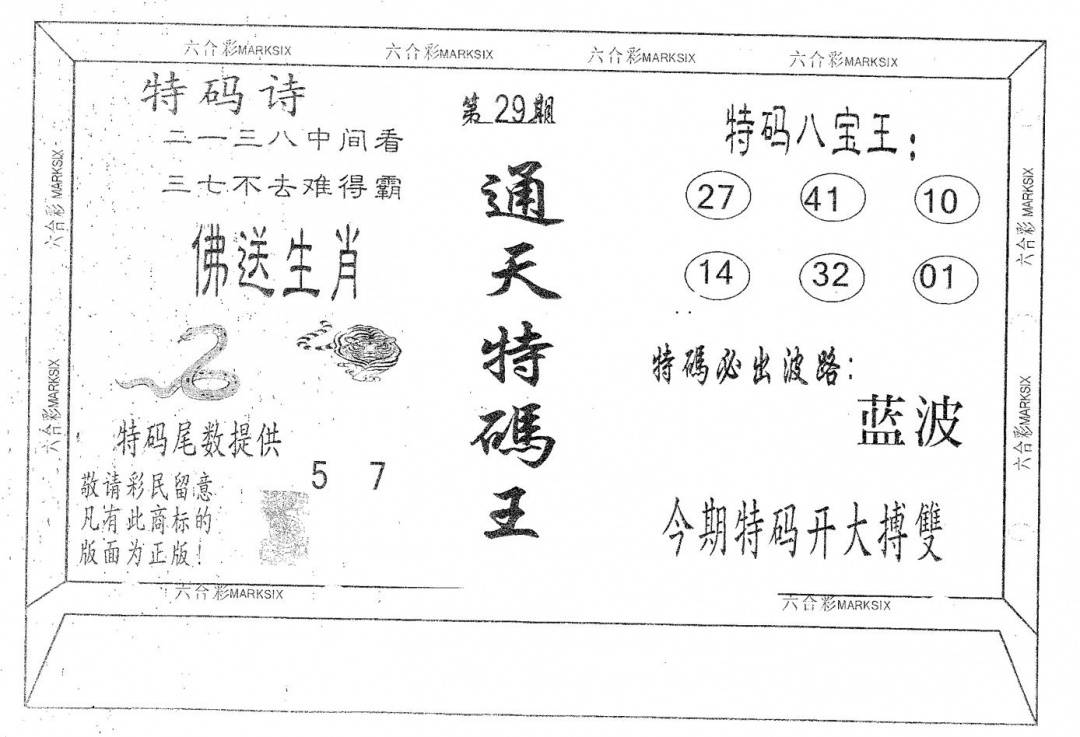 六合彩MARKSIX
六合彩MARKSIX
六合彩MARKSIX
六合彩MARKSIX
特码诗
二一三八中间看
三七不去难得霸
佛送生肖
特码尾数提供
5 7
敬请彩民留意
凡有此商标的
版面为正版!
第29期
通天特碼王
特码八宝王:
27 41 10
14 32 01
特碼必出波路:
蓝波
今期特码开大搏雙
六合彩MARKSIX
六合彩MARKSIX
六合彩MARKSIX
六合彩MARKSIX
六合彩MARKSIX
六合彩MARKSIX